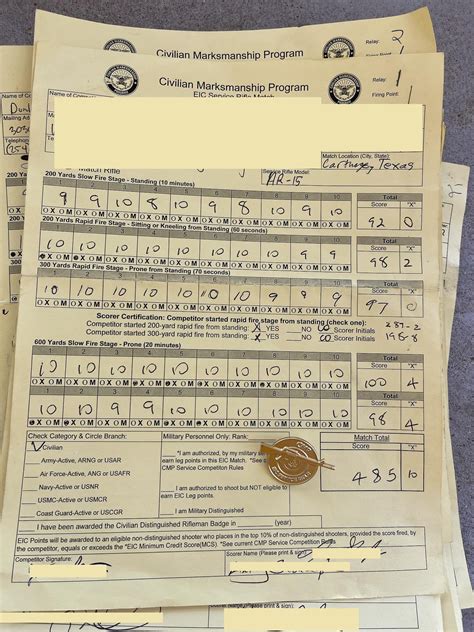 Civilian Marksmanship Program
Relay: 2
Civilian Marksmanship Program
EIC Service Rifle Match
Relay: 1
Firing Point: 1
Name of Co
Name of Compe
Mailing Ad
Telephone
Match Location (City, State):
Carthage, Texas
Match Rifle
Service Rifle Model:
AR-15
200 Yards Slow Fire Stage - Standing (10 minutes)
Total
1 2 3 4 5 6 7 8 9 10
Score "X"
9 9 10 8 10 9 8 10 9 10
92 0
O X O M O X O M O X O M O X O M O X O M
200 Yards Rapid Fire Stage - Sitting or Kneeling from Standing (60 seconds)
Total
1 2 3 4 5 6 7 8 9 10
Score "X"
10 10 10 10 10 10 10 10 9 9
98 2
O X O M O X O M O X O M O X O M O X O M
300 Yards Rapid Fire Stage - Prone from Standing (70 seconds)
Total
1 2 3 4 5 6 7 8 9 10
Score "X"
10 10 10 10 10 10 10 9 9 9
97 0
O X O M O X O M O X O M O X O M O X O M
Scorer Certification: Competitor started rapid fire stage from standing (check one):
287-2
Competitor started 200-yard rapid fire from standing: X YES NO CO Scorer Initials
Competitor started 300-yard rapid fire from standing: X YES NO CO Scorer Initials
198-8
600 Yards Slow Fire Stage - Prone (20 minutes)
Total
1 2 3 4 5 6 7 8 9 10
Score "X"
10 10 10 10 10 10 10 10 10 10
100 4
O X O M O X O M O X O M O X O M O X O M
10 10 9 9 10 10 10 10 10 10
98 4
O X O M O X O M O X O M O X O M O X O M
Check Category & Circle Branch:
Military Personnel Only: Rank:
Match Total
Civilian
Score "X"
Army-Active, ARNG or USAR
*I am authorized, by my military serv
earn leg points in this EIC Match. *See
CMP Service Competition Rules
485 10
Air Force-Active, ANG or USAFR
Navy-Active or USNR
I am authorized to shoot but NOT eligible to
earn EIC Leg points.
USMC-Active or USMCR
Coast Guard-Active or USCGR
I am Military Distinguished
I have been awarded the Civilian Distinguished Rifleman Badge in (year)
EIC Points will be awarded to an eligible non-distinguished shooter who places in the top 10% of non-distinguished shooters, provided the score fired, by
the competitor, equals or exceeds the *EIC Minimum Credit Score(MCS). *See current CMP Service Competition Rules
Competitor Signature:
Scorer Name (Please print & sign):